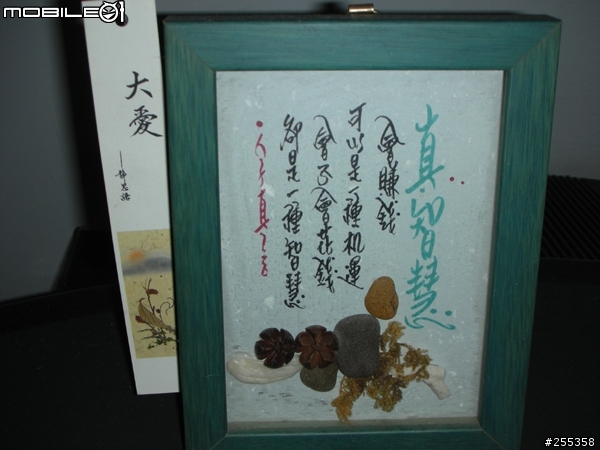 MOBILE01
大愛
──靜思語
真智慧
會賺錢
可以是一種机運
會不會花錢
卻是一種智慧
#255358